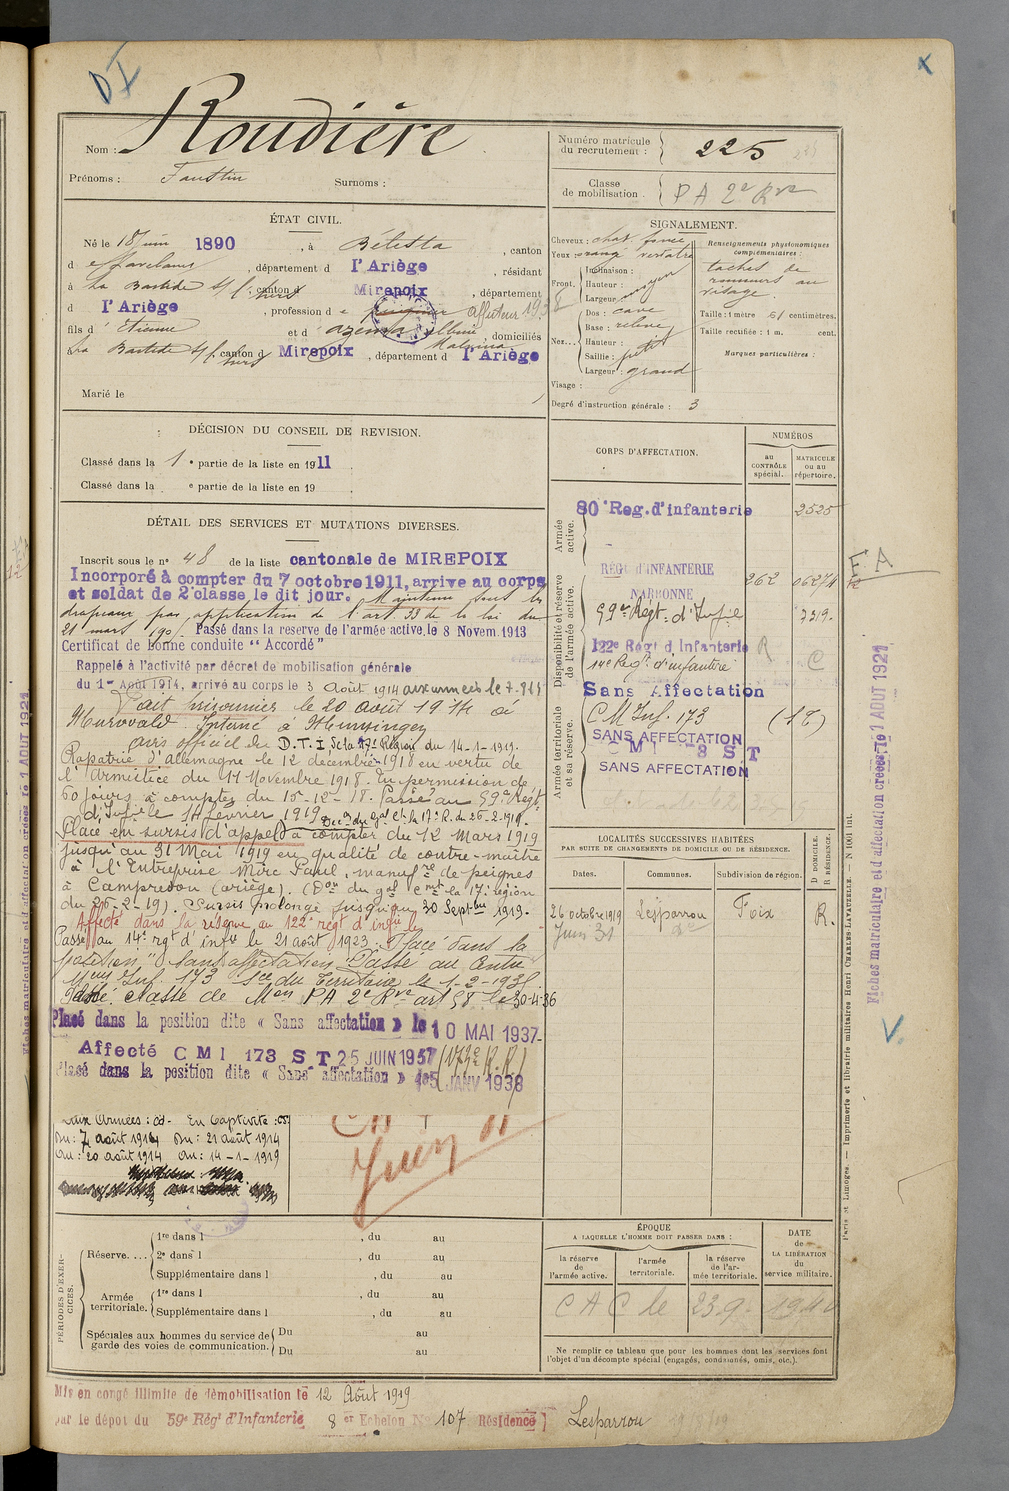 Nom : Roudière
Prénoms : Faustin Surnoms :
Numéro matricule du recrutement : 225
Classe de mobilisation P A 2e Rve
ÉTAT CIVIL.
Né le juin 1890, à Bélesta, canton
d , département d l'Ariège, résidant
à La Bastide s/l'hers, canton d Mirepoix, département
d l'Ariège, profession d affuteur 1938
fils d'Etienne et d' domiciliés
à La Bastide s/l'hers canton d Mirepoix, département d l'Ariège
Marié le
SIGNALEMENT.
Cheveux : chat. foncé
Yeux : orangé verdâtre
Front.
Inclinaison :
Hauteur :
Largeur : moyen
Nez...
Dos : cave
Base : relevé
Hauteur :
Saillie : petit
Largeur : grand
Visage :
Degré d'instruction générale : 3
Renseignements physionomiques complémentaires :
taches de
rousseurs au
visage.
Taille : 1 mètre 61 centimètres.
Taille rectifiée : 1 m. cent.
Marques particulières :
DÉCISION DU CONSEIL DE REVISION.
Classé dans la 1e partie de la liste en 1911
Classé dans la e partie de la liste en 19
DÉTAIL DES SERVICES ET MUTATIONS DIVERSES.
Inscrit sous le n° 48 de la liste cantonale de MIREPOIX
Incorporé à compter du 7 octobre 1911, arrive au corps
et soldat de 2e classe le dit jour. Maintenu sous les
drapeaux par application de l'art. 33 de la loi du
21 mars 190 . Passé dans la reserve de l'armée active, le 8 Novem. 1913
Certificat de bonne conduite " Accordé "
Rappelé à l'activité par décret de mobilisation générale
du 1er Août 1914, arrivé au corps le 3 Août 1914 aux armées le 7.8.14
Fait prisonnier le 20 août 1914 à
Interné à
avis officiel du D.T.I de la 17e Région du 14-1-1919.
Rapatrié d'Allemagne le 12 décembre 1918 en vertu de
l'Armistice du 11 Novembre 1918. En permission de
60 jours à compter du 15-12-18. Passé au 59e Régt
d'Infie le 14 février 1919
Placé en sursis d'appel à compter du 12 Mars 1919
jusqu'au 31 Mai 1919 en qualité de contre-maître
à l'Entreprise Mirc Paul, manufre de peignes
à Campredon (ariège). (Don du gal Cmt la 17e région
du 26-2-19). Sursis prolongé jusqu'au 30 Septbre 1919.
Affecté dans la réserve au 122e régt d'infie le
Passé au 14e rgt d'infie le 21 août 1923. Placé dans la
position "Sans affectation". Passé au Centre
Mon Inf. 173 Sce du Territoire le 1-2-193
Passé classe de Mon PA 2e Rve art 58 le 30-4-36
Placé dans la position dite « Sans affectation » le 10 MAI 1937
Affecté C M I 173 S T 25 JUIN 1937
Placé dans la position dite « Sans affectation » le 5 JANV 1938
Aux Armées : En Captivité :
Du : 7 août 1914 Du : 21 août 1914
Au : 20 août 1914 Au : 14-1-1919
CORPS D'AFFECTATION.
NUMÉROS
au CONTRÔLE spécial.
MATRICULE ou au répertoire.
Armée active.
80e Reg. d'infanterie 2525
Disponibilité et réserve de l'armée active.
RÉGt d'INFANTERIE NARBONNE 262 06274
59e Régt d'Infie 7219.
122e Régt d'Infanterie R
14e Régt d'infanterie C
Armée territoriale et sa réserve.
Sans Affectation
C M Inf. 173
SANS AFFECTATION
C M I S T
SANS AFFECTATION
E A
LOCALITÉS SUCCESSIVES HABITÉES
PAR SUITE DE CHANGEMENTS DE DOMICILE OU DE RÉSIDENCE.
Dates. Communes. Subdivision de région. D DOMICILE. R RÉSIDENCE.
26 octobre 1919 Lesparrou Foix R.
Juin 31 do
PÉRIODES D'EXERCICES.
Réserve....
1re dans l , du au
2e dans l , du au
Supplémentaire dans l , du au
Armée territoriale.
1re dans l , du au
Supplémentaire dans l , du au
Spéciales aux hommes du service de garde des voies de communication.
Du au
Du au
ÉPOQUE
A LAQUELLE L'HOMME DOIT PASSER DANS :
la réserve de l'armée active.
l'armée territoriale.
la réserve de l'armée territoriale.
DATE de LA LIBÉRATION du service militaire.
C A C le 23.9. 1940
Ne remplir ce tableau que pour les hommes dont les services font
l'objet d'un décompte spécial (engagés, condamnés, omis, etc.).
Mis en congé illimité de démobilisation le 12 Août 1919
par le dépot du 59e Régt d'Infanterie 8 er Echelon No 107 Résidence Lesparrou
Fiches matriculaire et d'affectation créées le 1 AOUT 1921
Paris et Limoges. — Imprimerie et librairie militaires Henri CHARLES-LAVAUZELLE.